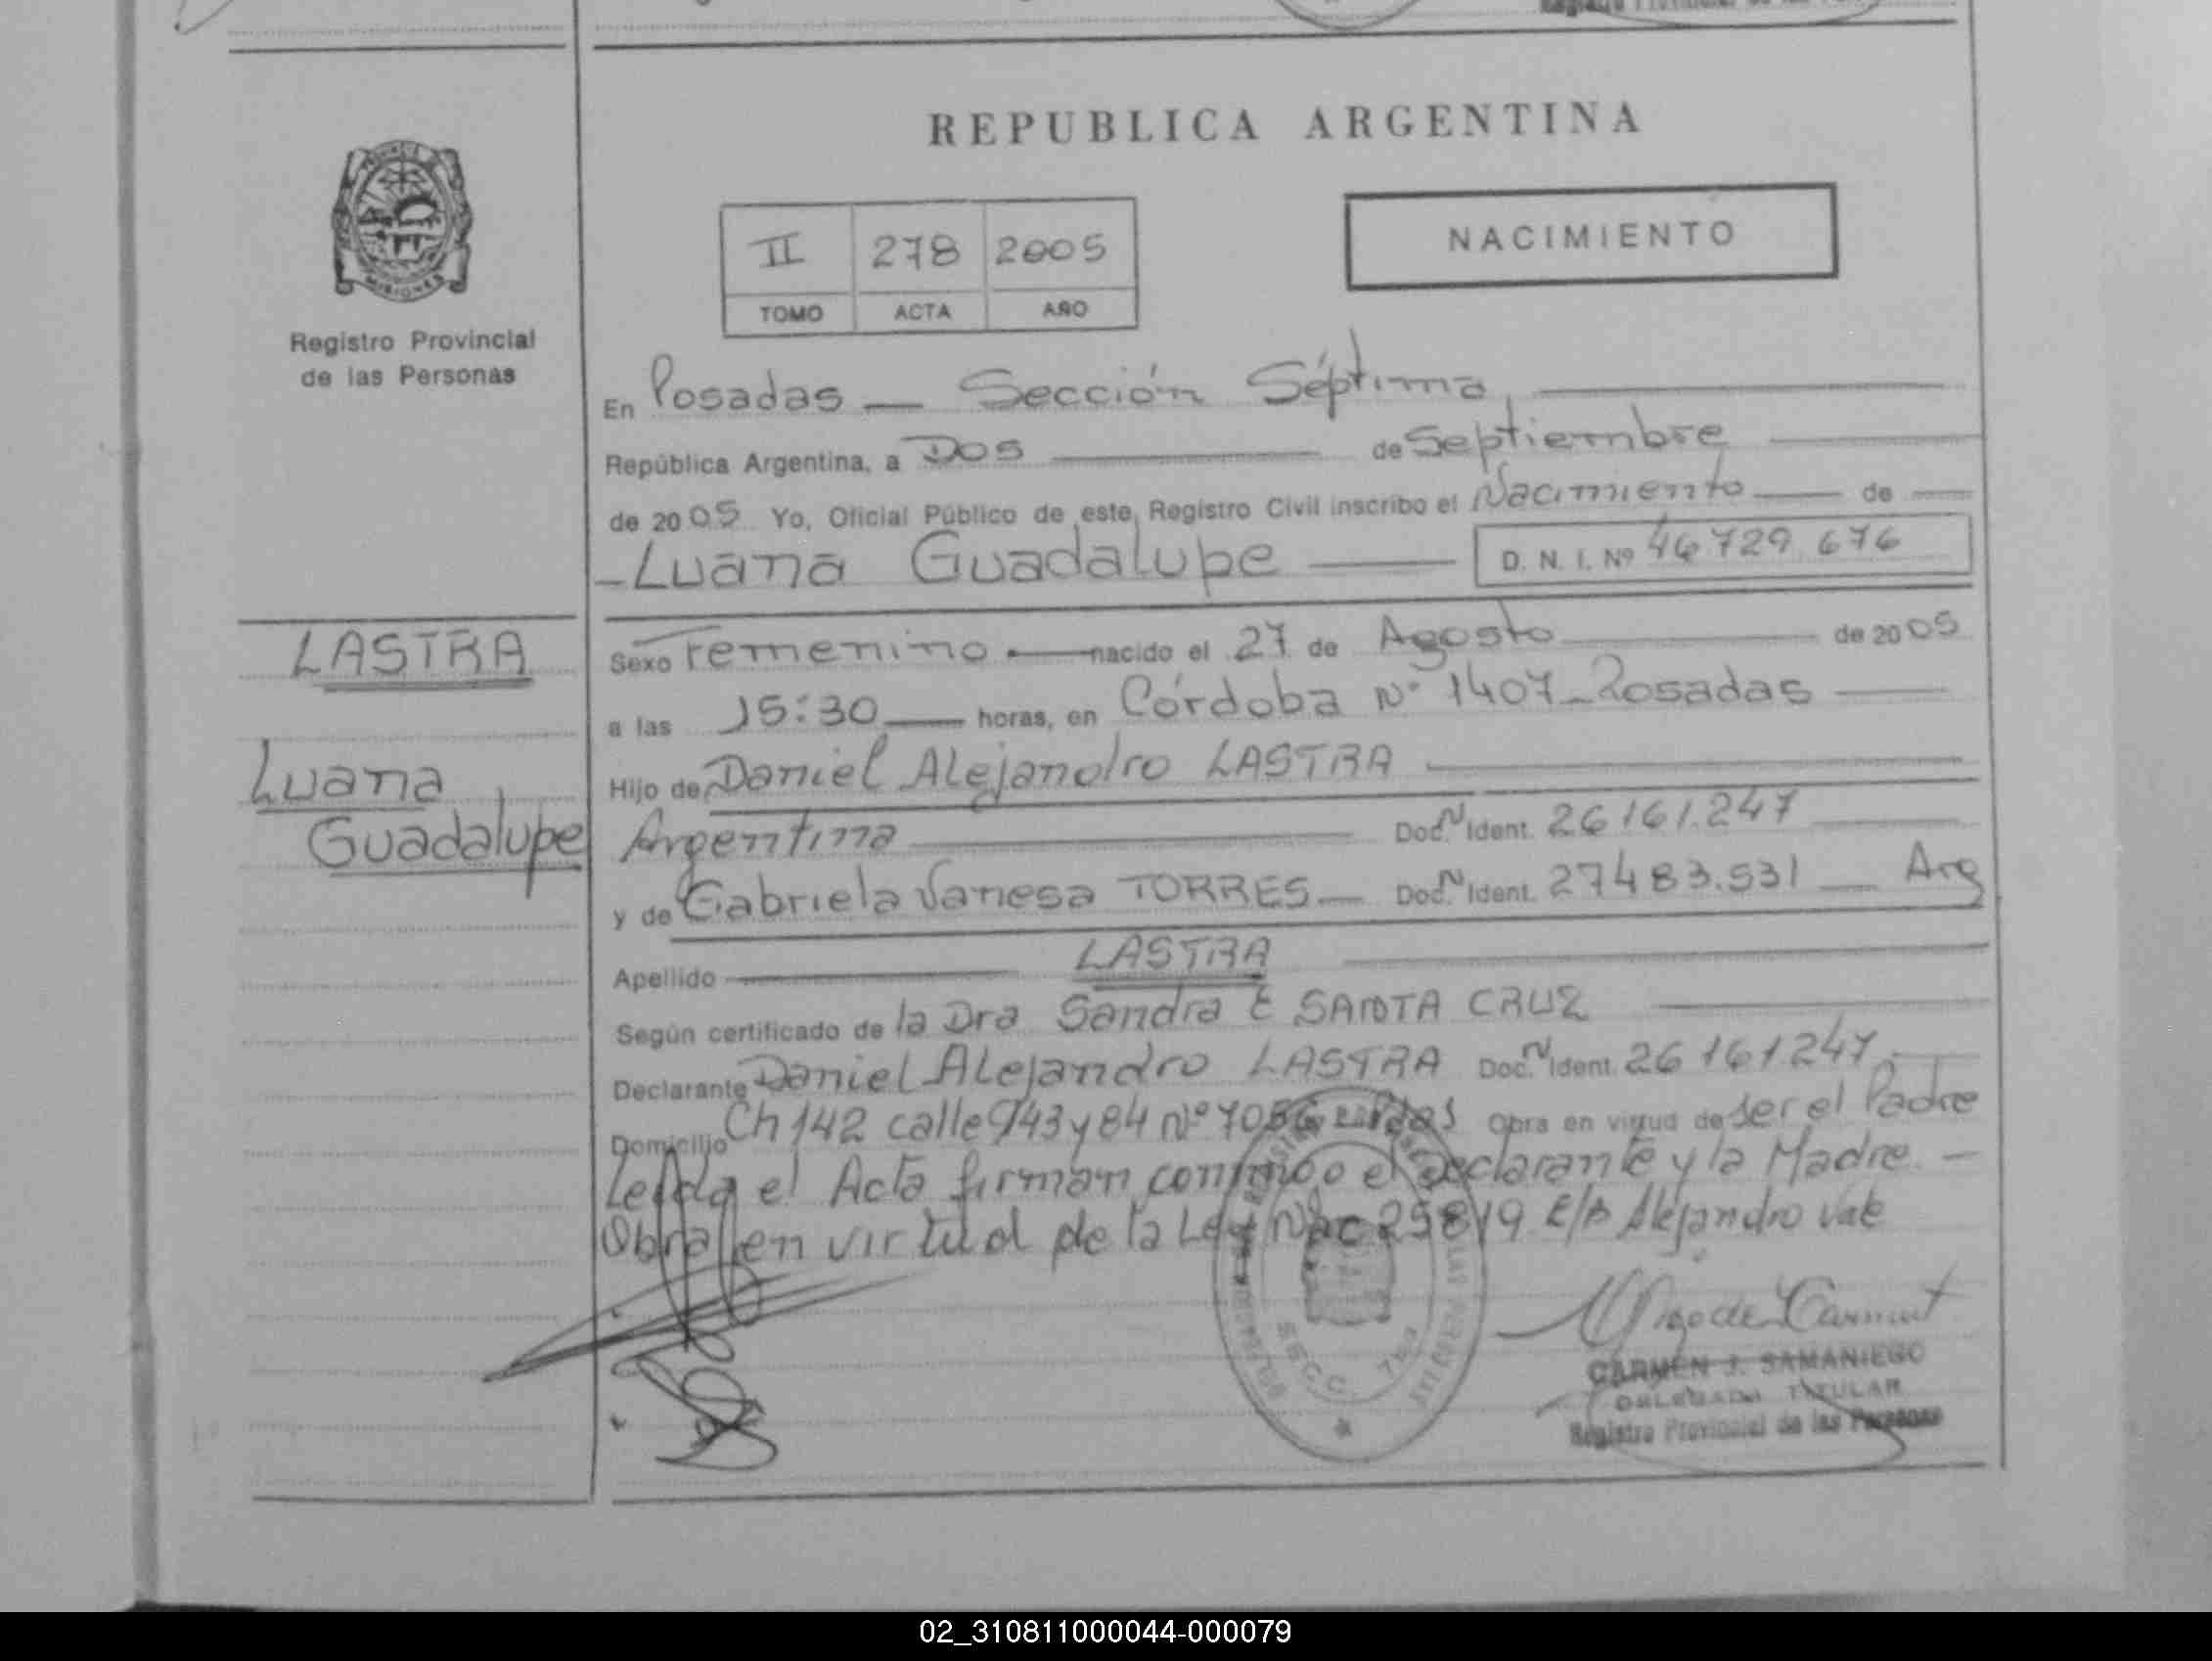 REPUBLICA ARGENTINA
NACIMIENTO
II 278 2005
TOMO ACTA AÑO
MISIONES
Registro Provincial
de las Personas
En Posadas — Sección Séptima
República Argentina, a Dos de Septiembre
de 2005 Yo, Oficial Público de este Registro Civil inscribo el Nacimiento de
Luana Guadalupe D. N. I. Nº 46 729 676
LASTRA
Luana
Guadalupe
Sexo Femenino nacido el 27 de Agosto de 2005
a las 15:30 horas, en Córdoba Nº 1407 - Posadas
Hijo de Daniel Alejandro LASTRA
Argentina Doc. N Ident. 26 161.247
y de Gabriela Vanesa TORRES — Doc. N Ident. 27483.531 — Arg
Apellido LASTRA
Según certificado de la Dra Sandra E SANTA CRUZ
Declarante Daniel Alejandro LASTRA Doc. N Ident. 26 161247
Domicilio Ch 142 calle 143 y 84 Nº Obra en virtud de ser el Padre
Leída el Acta firman conmigo el Declarante y la Madre. —
Obra en virtud de la Ley Nac 25819 E/A Alejandro Vale
CARMEN J. SAMANIEGO
DELEGADA TITULAR
Registro Provincial de las Personas
02_310811000044-000079